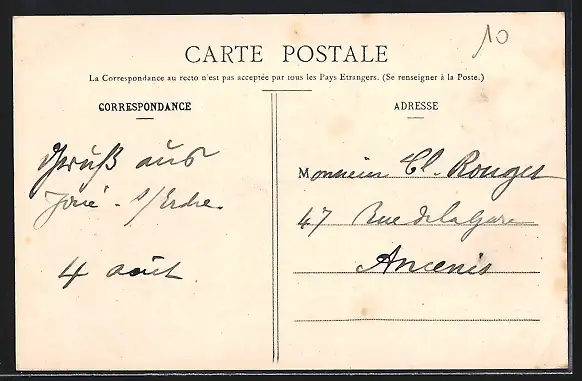 10
CARTE POSTALE
La Correspondance au recto n'est pas acceptée par tous les Pays Etrangers. (Se renseigner à la Poste.)
CORRESPONDANCE
Gruß aus
Joué - s/Erdre.
4 août
ADRESSE
Monsieur Cl. Rouget
47 Rue de la Gare
Ancenis